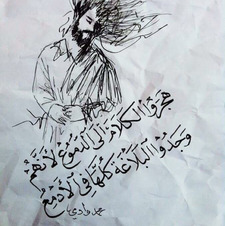 هجروا الكلام إلى الدموع لأنهم
وجدوا البلاغة كلها في الأدمع